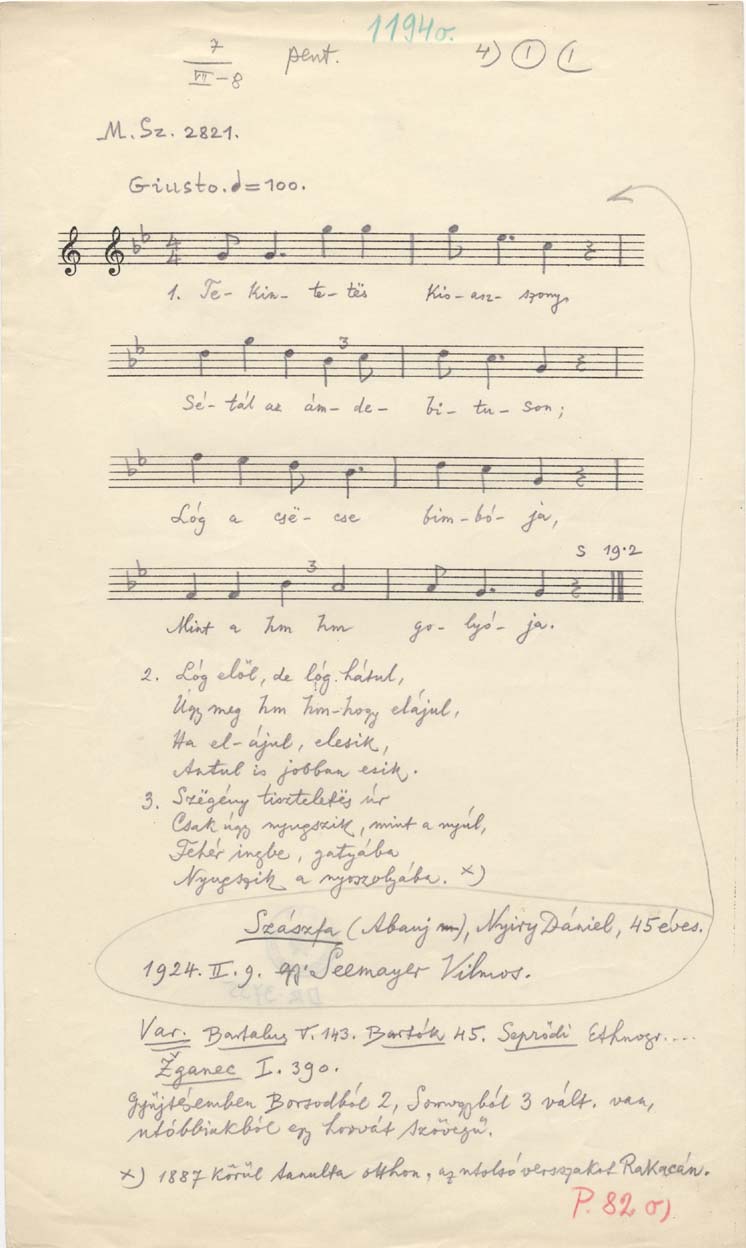 1194o.
7
VII-8
pent.
4) 1 1
M. Sz. 2821.
Giusto. = 100.
4
4
1. Te- kin- te- tës Kis- asz- szony,
3
Sé- tál az ám- de- bi- tu- son;
Lóg a csë- cse bim- bó- ja,
S 19.2
3
Mint a hm hm go- lyó- ja.
2. Lóg elől, de lóg hátul,
Úgy meg hm hm-hogy elájul,
Ha el-ájul, elesik,
Antul is jobban esik.
3. Szëgény tiszteletës úr
Csak úgy nyugszik, mint a nyúl,
Fehér ingbe, gatyába
Nyugszik a nyoszolyába. x)
Szászfa (Abauj m), Nyiry Dániel, 45 éves.
1924. II. 9. gy: Seemayer Vilmos.
Var. Bartalus V. 143. Bartók 45. Seprődi Ethnogr....
Žganec I. 390.
Gyüjtésemben Borsodból 2, 3 vált. van,
utóbbiakból egy horvát szövegű.
x) 1887 körül tanulta otthon, az utolsó versszakot Rakacán.
P. 82 o)